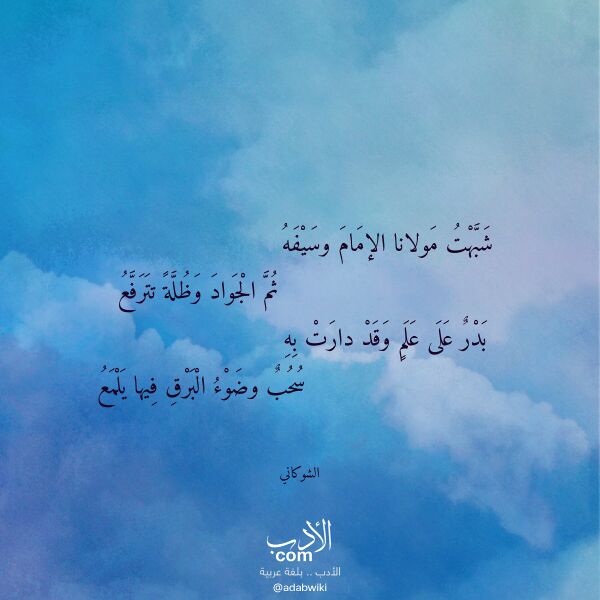 شَبَّهْتُ مَولانا الإمَامَ وسَيْفَهُ
ثُمَّ الْجَوادَ وَظُلَّةً تتَرَفَّعُ
بَدْرٌ عَلَى عَلَمٍ وَقَدْ دارَتْ بِهِ
سُحُبٌ وضَوْءُ الْبَرْقِ فِيها يَلْمَعُ
الشوكاني
الأدب
com
الأدب .. بلغة عربية
@adabwiki